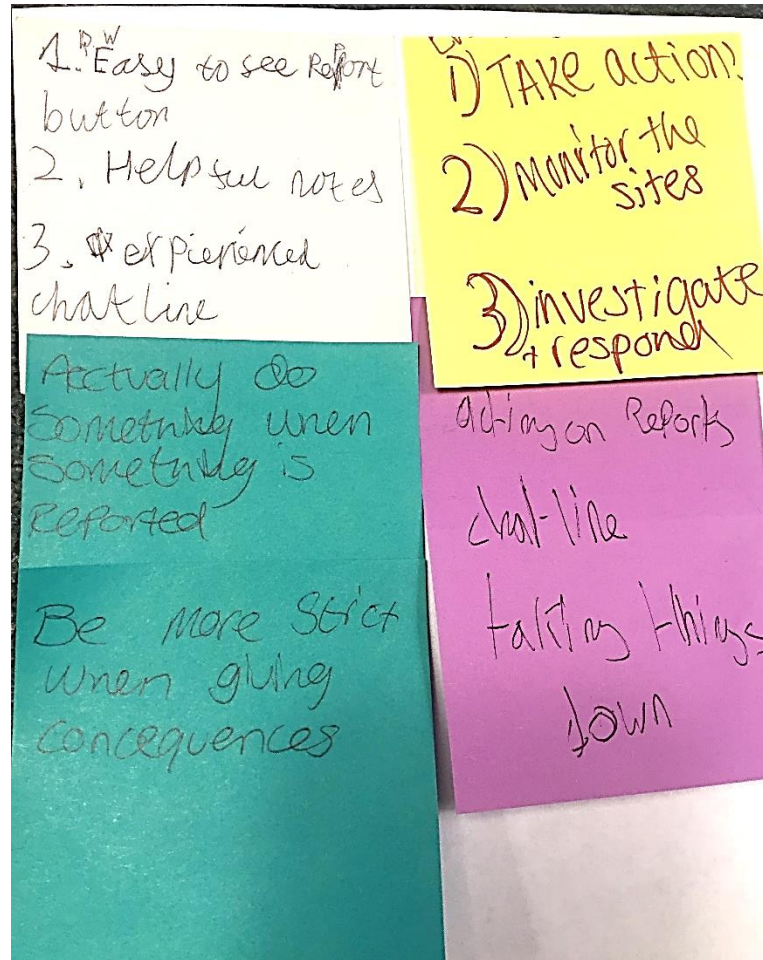 R W
1. Easy to see Report
button
2. Helpful notes
3. experienced
chatline
1) TAKE action!
2) monitor the
sites
3) investigate
+ respond
Acctually do
Something when
something is
Reported
Be more Strict
when giving
concequences
acting on Reports
chat-line
taking things
down